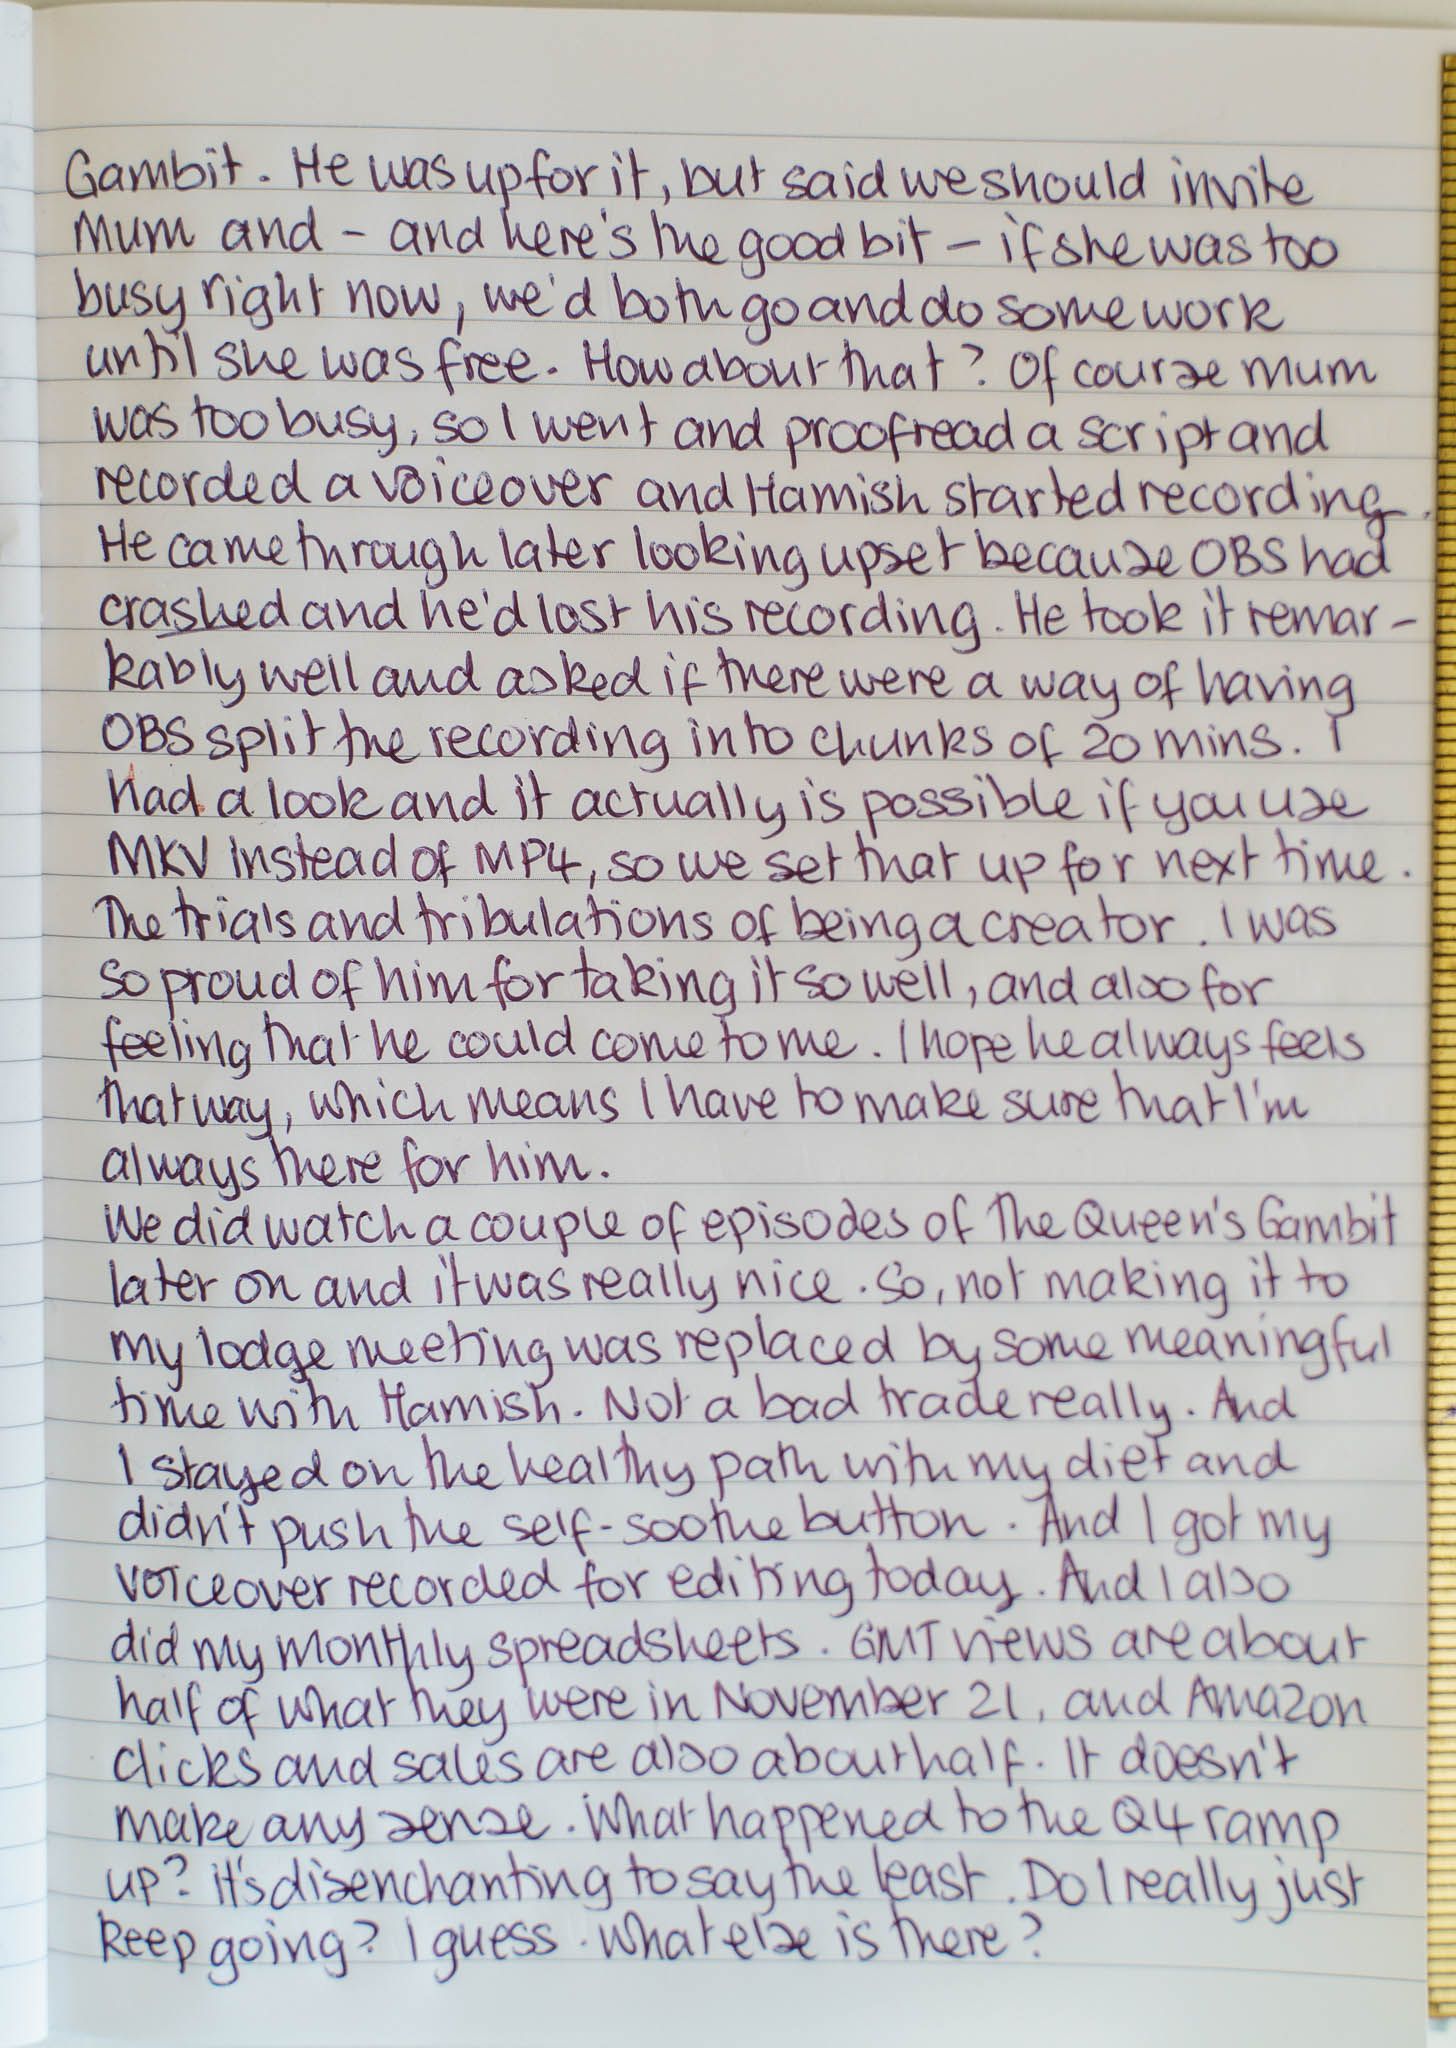 Gambit. He was up for it, but said we should invite
Mum and – and here's the good bit – if she was too
busy right now, we'd both go and do some work
until she was free. How about that? Of course Mum
was too busy, so I went and proofread a script and
recorded a voiceover and Hamish started recording.
He came through later looking upset because OBS had
crashed and he'd lost his recording. He took it remar-
kably well and asked if there were a way of having
OBS split the recording into chunks of 20 mins. I
had a look and it actually is possible if you use
MKV instead of MP4, so we set that up for next time.
The trials and tribulations of being a creator. I was
so proud of him for taking it so well, and also for
feeling that he could come to me. I hope he always feels
that way, which means I have to make sure that I'm
always there for him.
We did watch a couple of episodes of The Queen's Gambit
later on and it was really nice. So, not making it to
my lodge meeting was replaced by some meaningful
time with Hamish. Not a bad trade really. And
I stayed on the healthy path with my diet and
didn't push the self-soothe button. And I got my
voiceover recorded for editing today. And I also
did my monthly spreadsheets. GMT views are about
half of what they were in November 21, and Amazon
clicks and sales are also about half. It doesn't
make any sense. What happened to the Q4 ramp
up? It's disenchanting to say the least. Do I really just
keep going? I guess. What else is there?